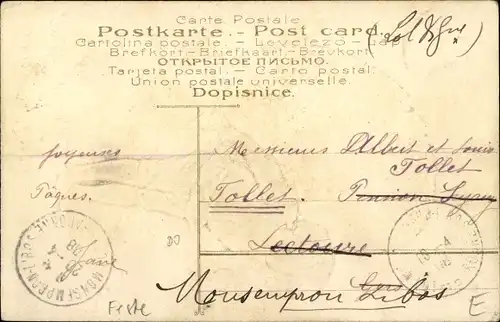 Carte Postale
Postkarte.- Post card.
Cartolina postale. - Levelezo-Lap.
Brefkort-Briefkaart-Brevkort.
ОТКРЫТОЕ ПИСЬМО.
Tarjeta postal.- Carto postal.
Union postale universelle.
Dopisnice.
Joyeuses
Pâques.
Messieurs Albert et Louis
Tollet
Tollet. Pension
Lectoure
Gers
Monsempron Libos
Feste
E